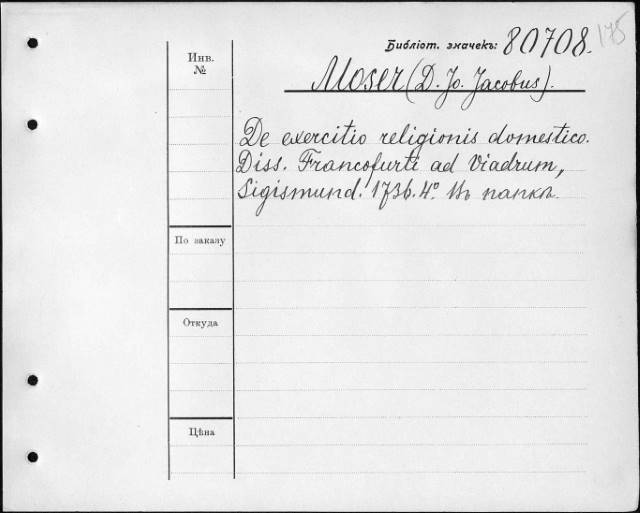 175
Библіот. значекъ: 80708.
Инв.
№
Moser (D. Jo. Jacobus).
De exercitio religionis domestico.
Diss. Francofurti ad Viadrum,
Sigismund. 1736. 4°. Въ папкѣ.
По заказу
Откуда
Цѣна